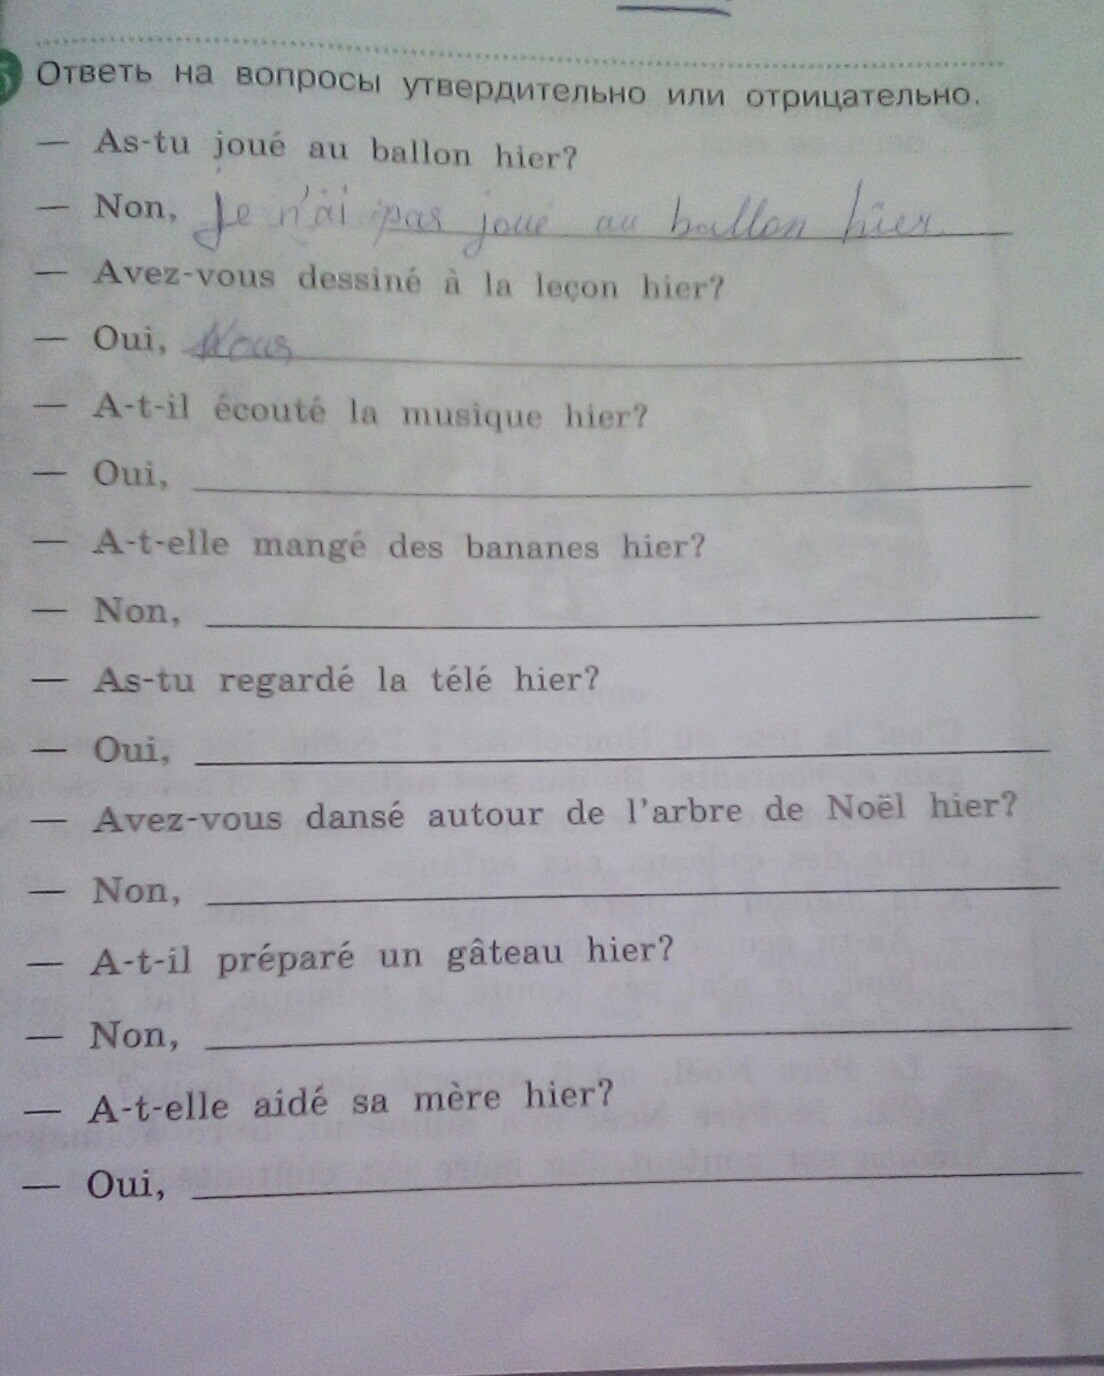 Ответь на вопросы утвердительно или отрицательно.
— As-tu joué au ballon hier?
— Non, Je n'ai pas joué au ballon hier.
— Avez-vous dessiné à la leçon hier?
— Oui, Nous
— A-t-il écouté la musique hier?
— Oui,
— A-t-elle mangé des bananes hier?
— Non,
— As-tu regardé la télé hier?
— Oui,
— Avez-vous dansé autour de l'arbre de Noël hier?
— Non,
— A-t-il préparé un gâteau hier?
— Non,
— A-t-elle aidé sa mère hier?
— Oui,